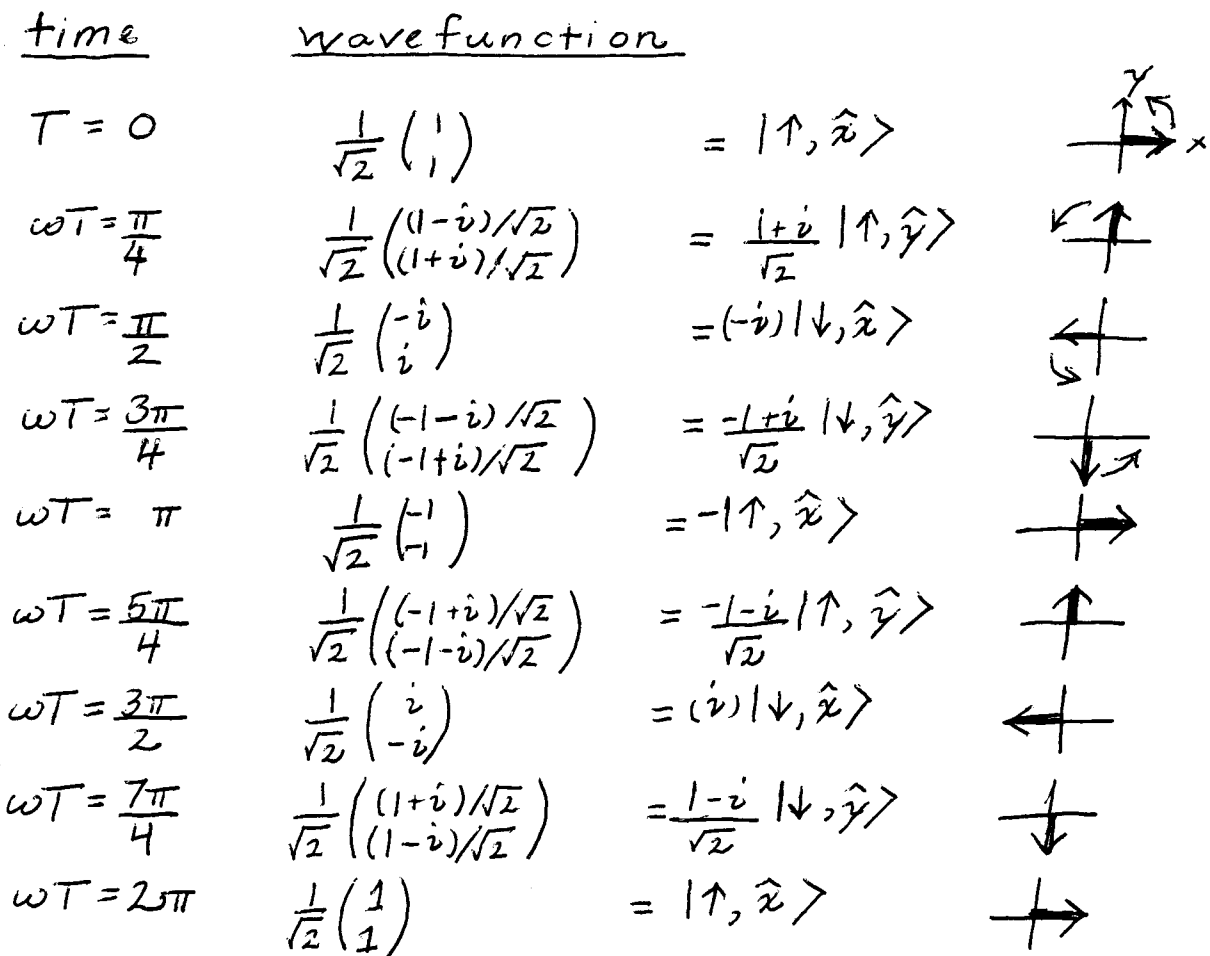 time wavefunction
T = 0 1/√2 (1 1) = |↑, x̂> y x
ωT = π/4 1/√2 ((1-i)/√2 (1+i)/√2) = 1+i/√2 |↑, ŷ>
ωT = π/2 1/√2 (-i i) = (-i)|↓, x̂>
ωT = 3π/4 1/√2 ((-1-i)/√2 (-1+i)/√2) = -1+i/√2 |↓, ŷ>
ωT = π 1/√2 (-1 -1) = -|↑, x̂>
ωT = 5π/4 1/√2 ((-1+i)/√2 (-1-i)/√2) = -1-i/√2 |↑, ŷ>
ωT = 3π/2 1/√2 (i -i) = (i)|↓, x̂>
ωT = 7π/4 1/√2 ((1+i)/√2 (1-i)/√2) = 1-i/√2 |↓, ŷ>
ωT = 2π 1/√2 (1 1) = |↑, x̂>